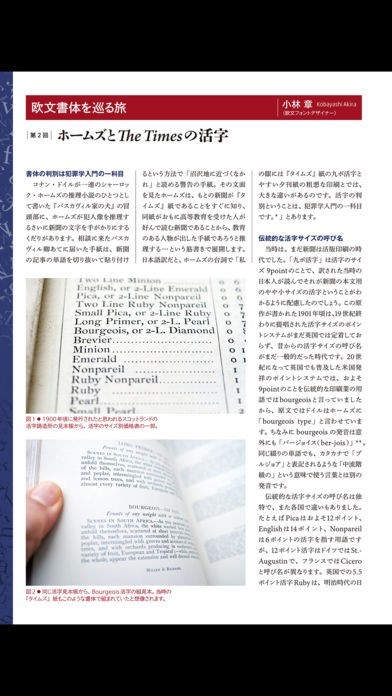 欧文書体を巡る旅
小林 章 Kobayashi Akira
(欧文フォントデザイナー)
第2回
ホームズとThe Timesの活字
書体の判別は犯罪学入門の一科目
コナン・ドイルが一連のシャーロッ
ク・ホームズの推理小説のひとつとし
て書いた『バスカヴィル家の犬』の冒
頭部に、ホームズが犯人像を推理す
るさいに新聞の文字を手がかりにする
くだりがあります。相談に来たバスカ
ヴィル卿あてに届いた手紙は、新聞
の記事の単語を切り抜いて貼り付け
るという方法で「沼沢地に近づくなか
れ」と読める警告の手紙。その文面
を見たホームズは、もとの新聞が『タ
イムズ』紙であることをすぐに知り、
同紙がおもに高等教育を受けた人が
好んで読む新聞であることから、教育
のある人物が出した手紙であろうと推
理する… という筋書きで展開します。
日本語訳だと、ホームズの台詞で「私
の眼には『タイムズ』紙の九ポ活字
とやすい夕刊紙の粗悪な印刷とでは、
大きな違いがあるのです。活字の判
別ということは、犯罪学入門の一科目
です。*」とあります。
伝統的な活字サイズの呼び名
当時は、まだ新聞は活版印刷の時
代でした。「九ポ活字」は活字のサイ
ズ 9pointのことで、訳された当時の
日本人が読んでそれが新聞の本文用
のやや小サイズの活字ということがわ
かるように配慮したのでしょう。この原
作が書かれた1901年頃は、19世紀終
わりに提唱された活字サイズのポイン
トシステムがまだ英国では定着してお
らず、昔からの活字サイズの呼び名
がまだ一般的だった時代です。20世
紀になって英国でも普及した米国発
祥のポイントシステムでは、およそ
9pointのことを伝統的な印刷業の用
語ではbourgeoisと言っていました
から、原文ではドイルはホームズに
「bourgeois type」と言わせていま
す。ちなみに bourgeois の発音は意
外にも「バージョイス(ber-jois)」**。
同じ綴りの単語でも、カタカナで「ブ
ルジョア」と表記されるような「中流階
級の」という意味で使う言葉とは別の
発音です。
伝統的な活字サイズの呼び名は独
特で、また各国で違いもありました。
たとえばPicaはおよそ12ポイント、
Englishは14ポイント、Nonpareil
は6ポイントの活字を指す用語です
が、12ポイント活字はドイツではSt-
Augustin で、フランスではCicero
と呼び名が異なります。英国での5.5
ポイント活字Rubyは、明治時代の日
Two Line Minion
English, or 2-Line Emerald
Pica, or 2-Line Nonpareil
Small Pica, or 2-Line Ruby
Long Primer, or 2-L. Pearl
Bourgeois, or 2-L. Diamond
Brevier
Minion
Emerald
Nonpareil
Ruby Nonpareil
Ruby
Pearl
図1 ● 1900年頃に発行されたと思われるスコットランドの
活字鋳造所の見本帳から、活字のサイズ別価格表の一部。
BOURGEOIS
MILLER & RICHARD.
図2 ● 同じ活字見本帳から、Bourgeois活字の組見本。当時の
『タイムズ』紙もこのような書体で組まれていたと想像されます。